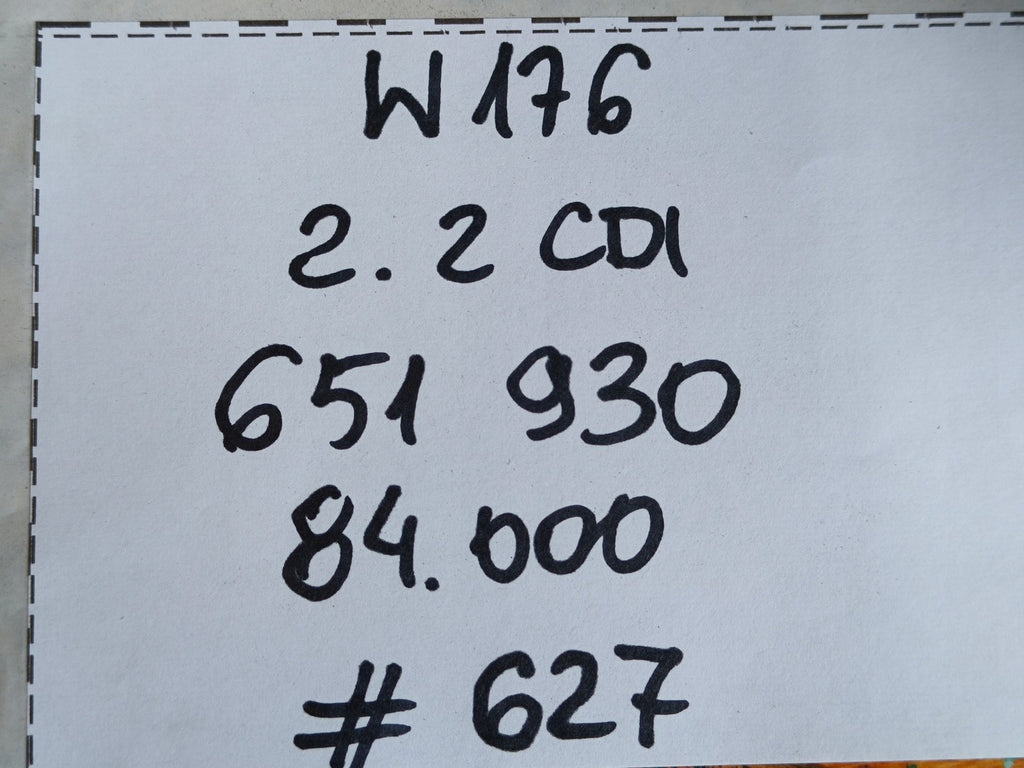 W176
2.2 CDI
651 930
84.000
# 627